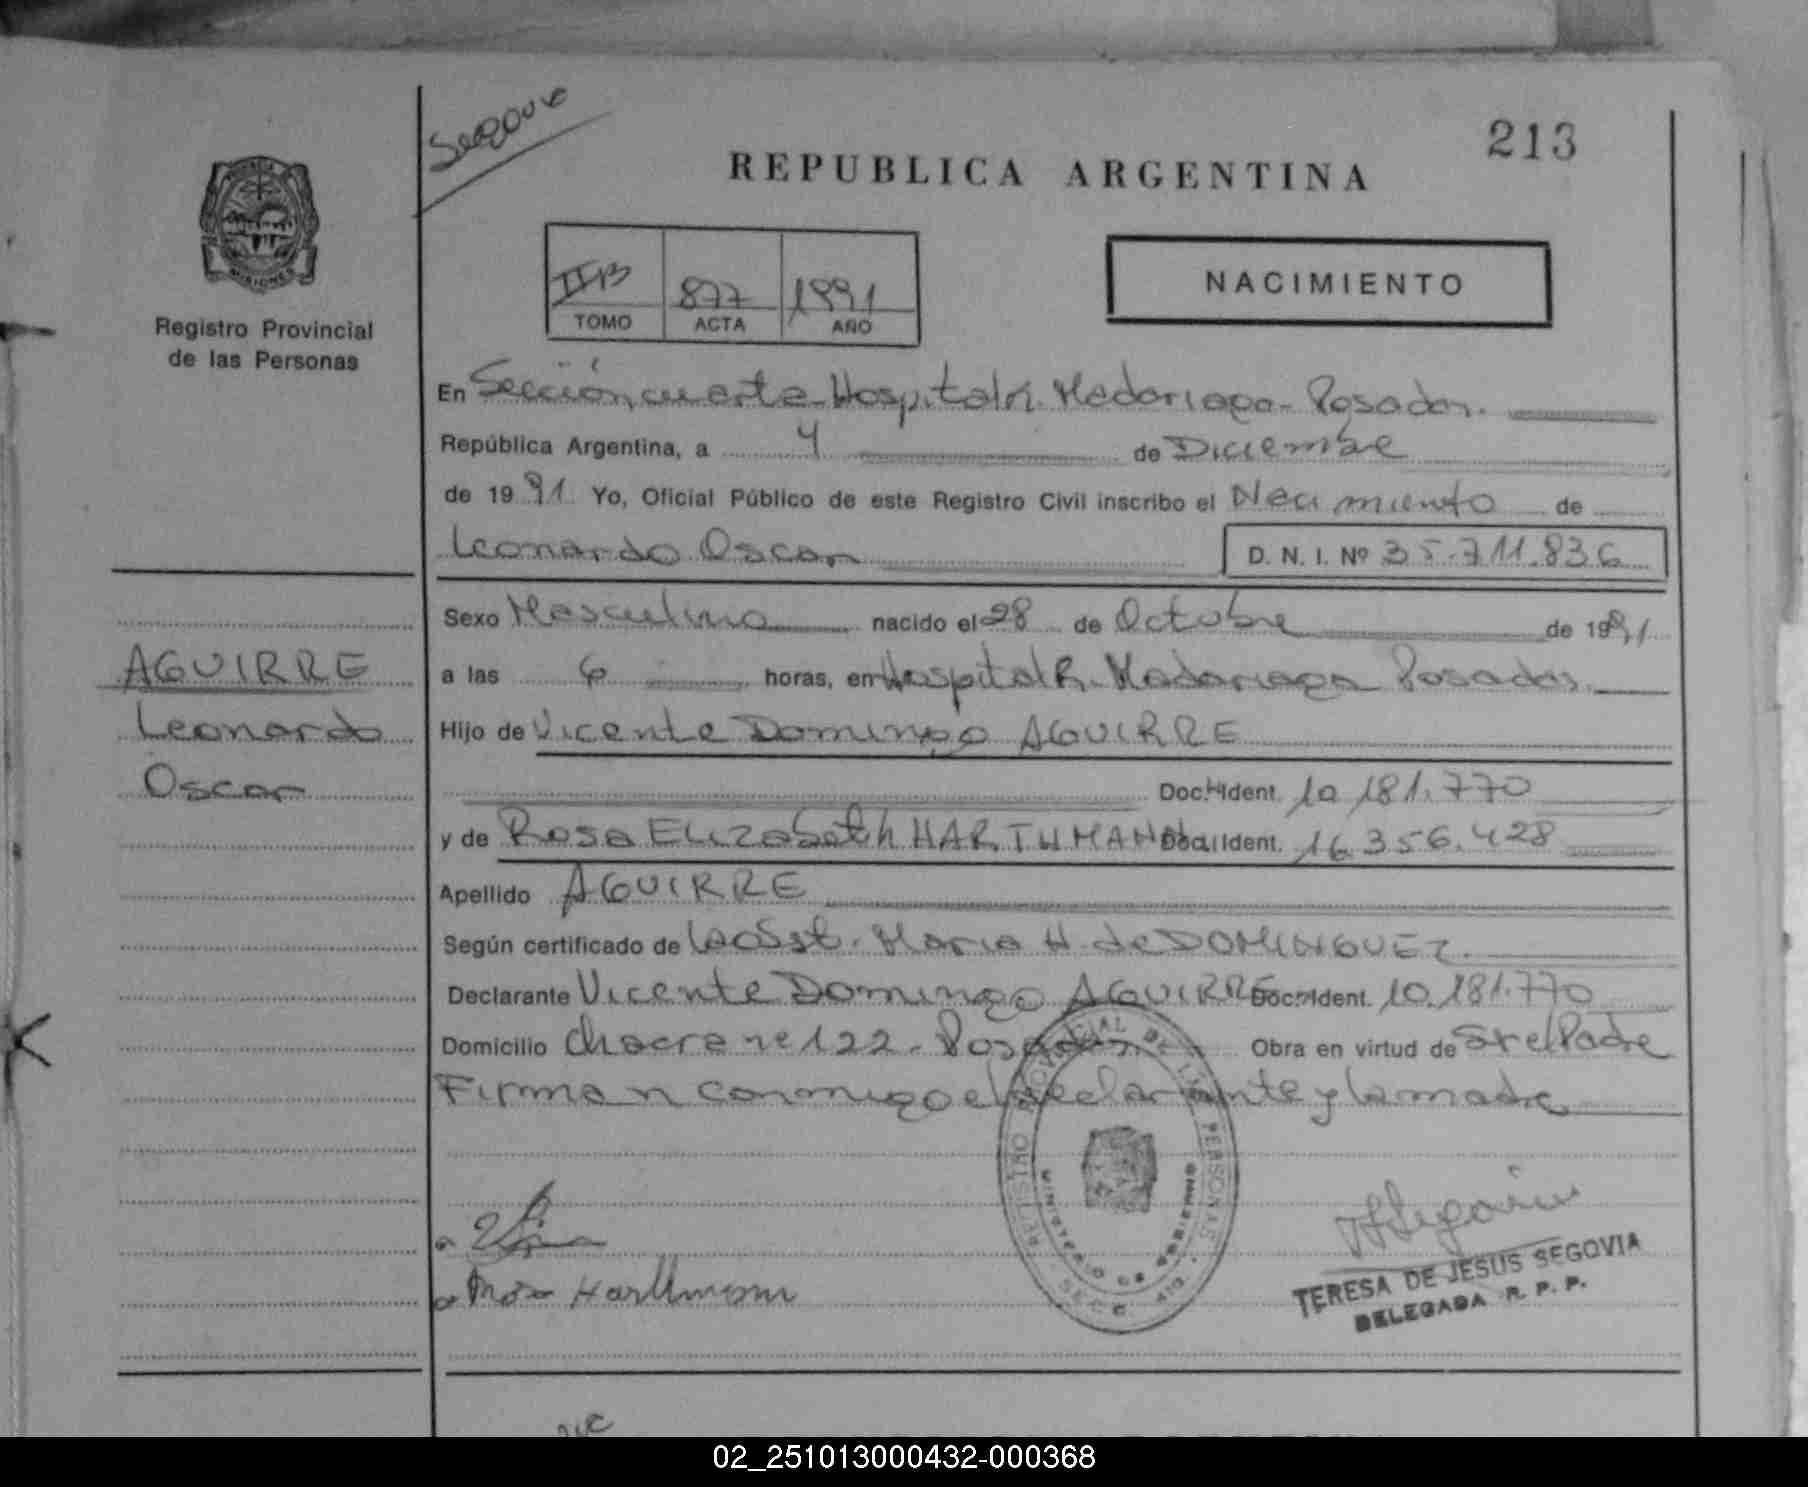 213
REPUBLICA ARGENTINA
PROVINCIA
MISIONES
Registro Provincial
de las Personas
IIB 877 1991
TOMO ACTA AÑO
NACIMIENTO
En Sección cuarta Hospital R. Madariaga - Posadas.
República Argentina, a 4 de Diciembre
de 1991 Yo, Oficial Público de este Registro Civil inscribo el Nacimiento de
Leonardo Oscar D. N. I. Nº 35.711.836
Sexo Masculino nacido el 28 de Octubre de 1991
AGUIRRE
Leonardo
Oscar
a las 6 horas, en Hospital R. Madariaga Posadas.
Hijo de Vicente Domingo AGUIRRE
Doc. Ident. 10.181.770
y de Rosa Elizabeth HARTHMANN Doc. Ident. 16.356.428
Apellido AGUIRRE
Según certificado de la Obst. Maria H. de DOMINGUEZ.
Declarante Vicente Domingo AGUIRRE Doc. Ident. 10.181.770
Domicilio Chacra nº 122 - Posadas Obra en virtud de Sr el Padre
Firman conmigo el declarante y la madre
REGISTRO PROVINCIAL DE LAS PERSONAS
MINISTERIO DE GOBIERNO
SECC. 4ta.
Rosa Harthmann
TERESA DE JESUS SEGOVIA
DELEGADA R. P. P.
02_251013000432-000368